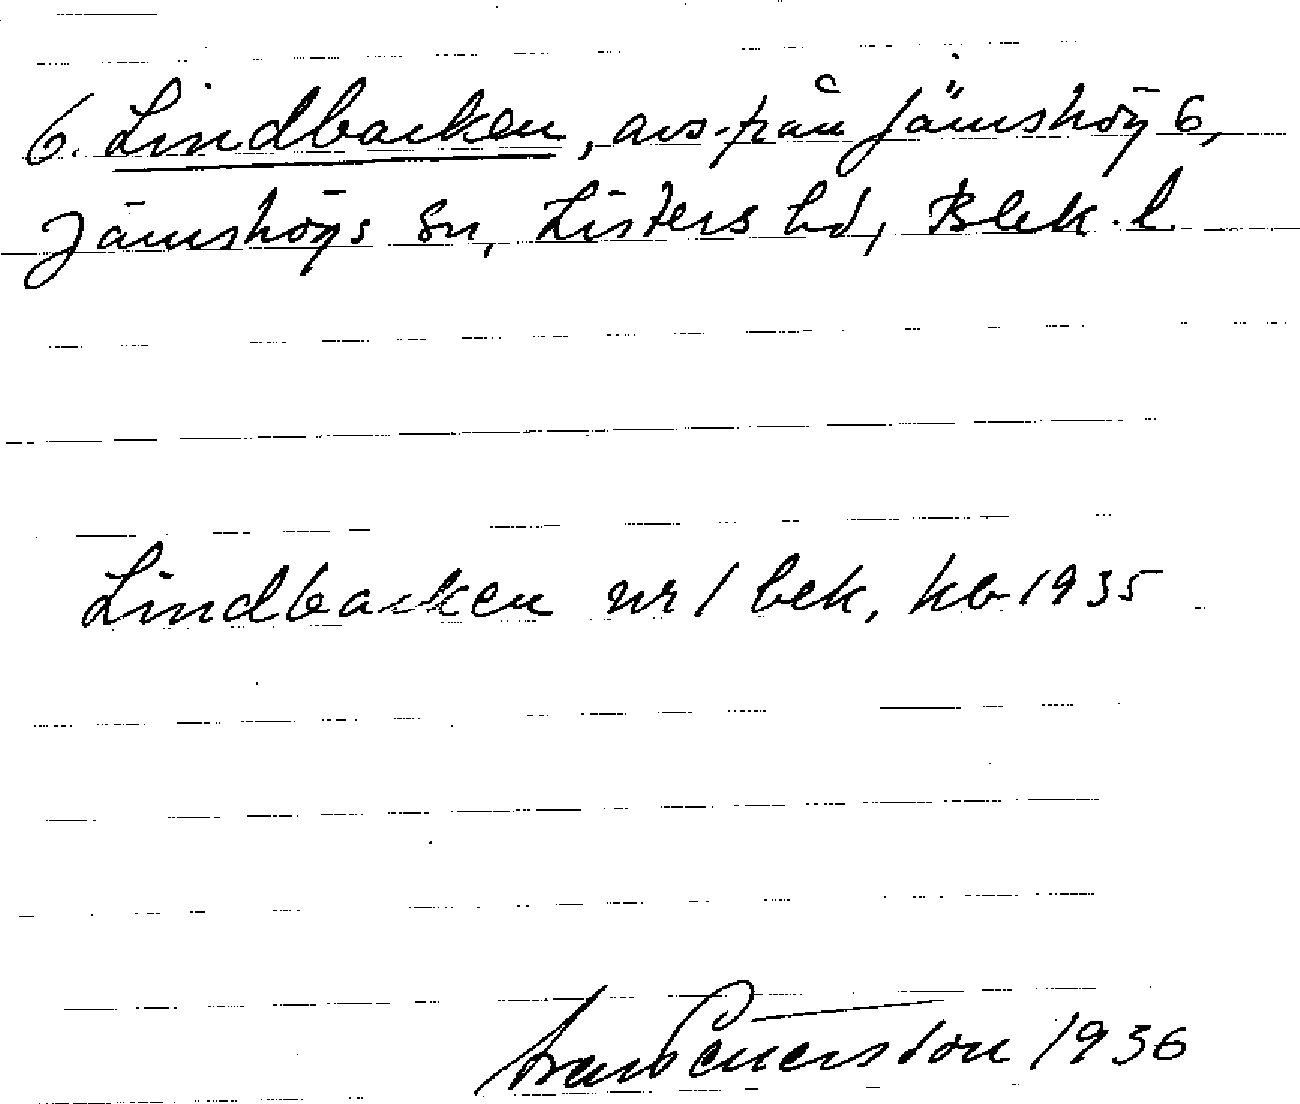 6. Lindbacken, avs. från Jämshög 6,
Jämshögs sn, Listers hd, Blek. l.
Lindbacken nr 1 bek, kb 1935
1936